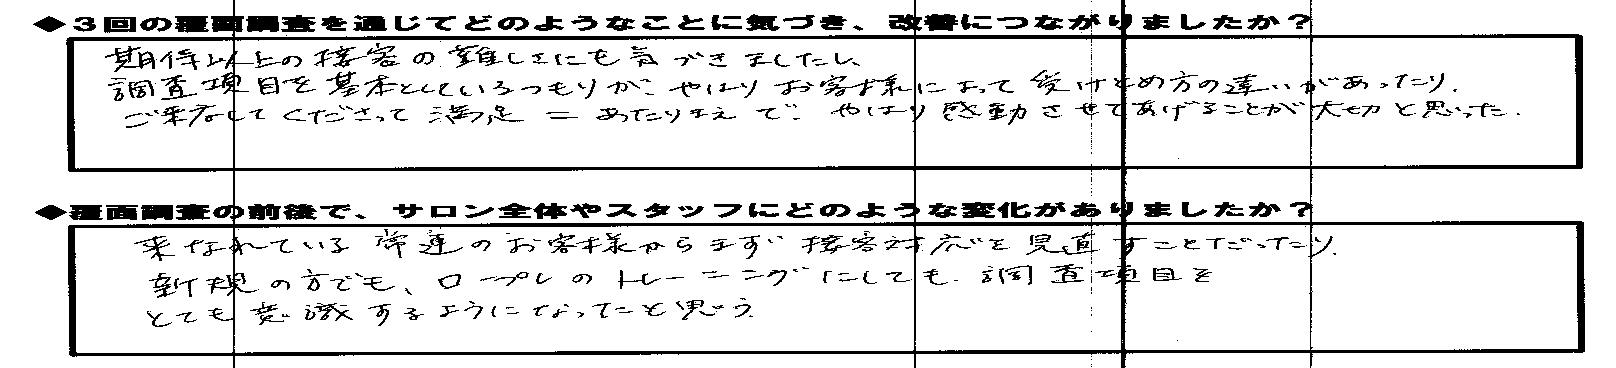 ◆3回の覆面調査を通じてどのようなことに気づき、改善につながりましたか?
期待以上の接客の難しさにも気づきましたし、
調査項目を基本としているつもりが、やはりお客様によって受けとめ方の違いがあったり、
ご来店してくださって満足=あたりまえで、やはり感動させてあげることが大切と思った.
◆覆面調査の前後で、サロン全体やスタッフにどのような変化がありましたか?
来なれている常連のお客様からまず接客対応を見直すことだったり、
新規の方でも、ロープレのトレーニングにしても、調査項目を
とても意識するようになったと思う.